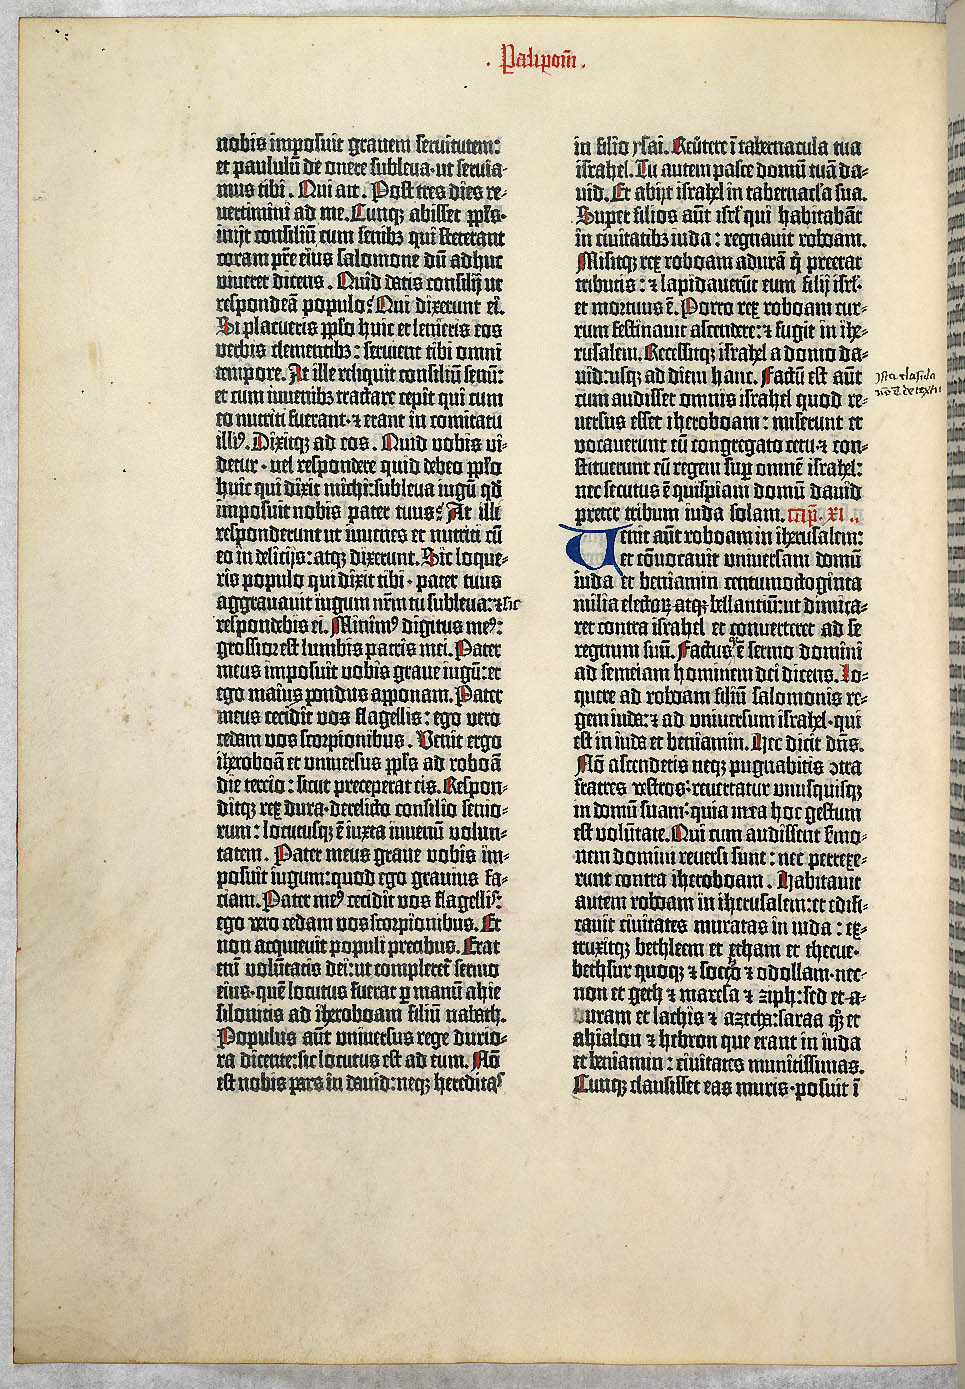 . Palipom̄ .
nobis imposuit grauem seruitutem:
et paululū de onere subleua·ut seruia-
mus tibi. Qui ait. Post tres dies re-
uertimini ad me. Cunqꝫ abisset ppl̄s·
inijt consiliū cum senibꝫ qui steterant
coram pr̄e eius salomone dū adhuc
viueret dicens. Quid datis consilij ut
respondeā populo? Qui dixerunt ei.
Si placueris pplo huic et lenieris eos
verbis clementibꝫ: seruient tibi omni
tempore. At ille reliquit consiliū senū:
et cum iuuenibꝫ tractare cepit qui cum
eo nutriti fuerant·⁊ erant in comitatu
illiꝰ. Dixitqꝫ ad eos. Quid vobis vi-
detur·uel respondere quid debeo pplo
huic qui dixit michi: subleua iugū qd̄
imposuit nobis pater tuus? At illi
responderunt ut iuuenes et nutriti cū
eo in delicijs: atqꝫ dixerunt. Sic loque-
ris populo qui dixit tibi·pater tuus
aggrauauit iugum nr̄m tu subleua: ⁊ sic
respondebis ei. Minimꝰ digitus meꝰ:
grossior est lumbis patris mei. Pater
meus imposuit vobis graue iugū: et
ego maius pondus apponam. Pater
meus cecidit vos flagellis: ego vero
cedam vos scorpionibus. Venit ergo
iheroboā et vniuersus ppl̄s ad roboā
die tercio: sicut preceperat eis. Respon-
ditqꝫ rex dura·derelicto consilio senio-
rum: locutusqꝫ ē iuxta iuuenū volun-
tatem. Pater meus graue vobis im-
posuit iugum: quod ego grauius fa-
ciam. Pater meꝰ cecidit vos flagellis:
ego vero cedam vos scorpionibus. Et
non acquieuit populi precibus. Erat
eni᷑ volūtatis dei: ut compleret᷑ sermo
eius·quē locutus fuerat p manū ahie
silonitis ad iheroboam filiū nabath.
Populus aūt vniuersus rege durio-
ra dicente: sic locutus est ad eum. Nō
est nobis pars in dauid: neqꝫ hereditas
in filio ysai. Reūtere ī tabernacula tua
israhel. Tu autem pasce domū tuā da-
uid. Et abijt israhel in tabernacla sua.
Super filios aūt isrl̄ qui habitabāt
in ciuitatibꝫ iuda: regnauit roboam.
Misitqꝫ rex roboam adurā q̇ preerat
tributis: ⁊ lapidauerūt eum filij isrl̄·
et mortuus ē. Porro rex roboam cur-
rum festinauit ascendere: ⁊ fugit in ihe-
rusalem. Recessitqꝫ israhel a domo da-
uid: usqꝫ ad diem hanc. Factū est aūt
cum audisset omnis israhel quod re-
uersus esset iheroboam: miserunt et
vocauerunt eū congregato cetu·⁊ con-
stituerunt eū regem sup omnē israhel:
nec secutus ē quispiam domū dauid
preter tribum iuda solam. cap̄. XI..
Venit aūt roboam in iherusalem:
et cōuocauit vniuersam domū
iuda et beniamin centumoctoginta
milia electoꝝ atqꝫ bellantiū: ut dimica-
ret contra israhel et conuerteret ad se
regnum suū. Factus ē sermo domini
ad semeiam hominem dei dicens. Lo-
quere ad roboam filiū salomonis re-
gem iuda: ⁊ ad vniuersum israhel·qui
est in iuda et beniamin. Hec dicit dn̄s.
Nō ascendetis neqꝫ pugnabitis ↄtra
fratres vestros: reuertatur vnusquisqꝫ
in domū suam: quia mea hoc gestum
est volūtate. Qui cum audissent s̄mo-
nem domini reuersi sunt: nec perrexe-
runt contra iheroboam. Habitauit
autem roboam in iherusalem: et edifi-
cauit ciuitates muratas in iuda: ex-
truxitqꝫ bethleem et etham et thecue·
bethsur quoqꝫ ⁊ soccho ⁊ odollam·nec-
non et geth ⁊ maresa ⁊ ziph: sed et a-
duram et lachis ⁊ azecha: saraa qꝫ et
ahialon ⁊ hebron que erant in iuda
et beniamin: ciuitates munitissimas.
Cunqꝫ clausisset eas muris·posuit ī